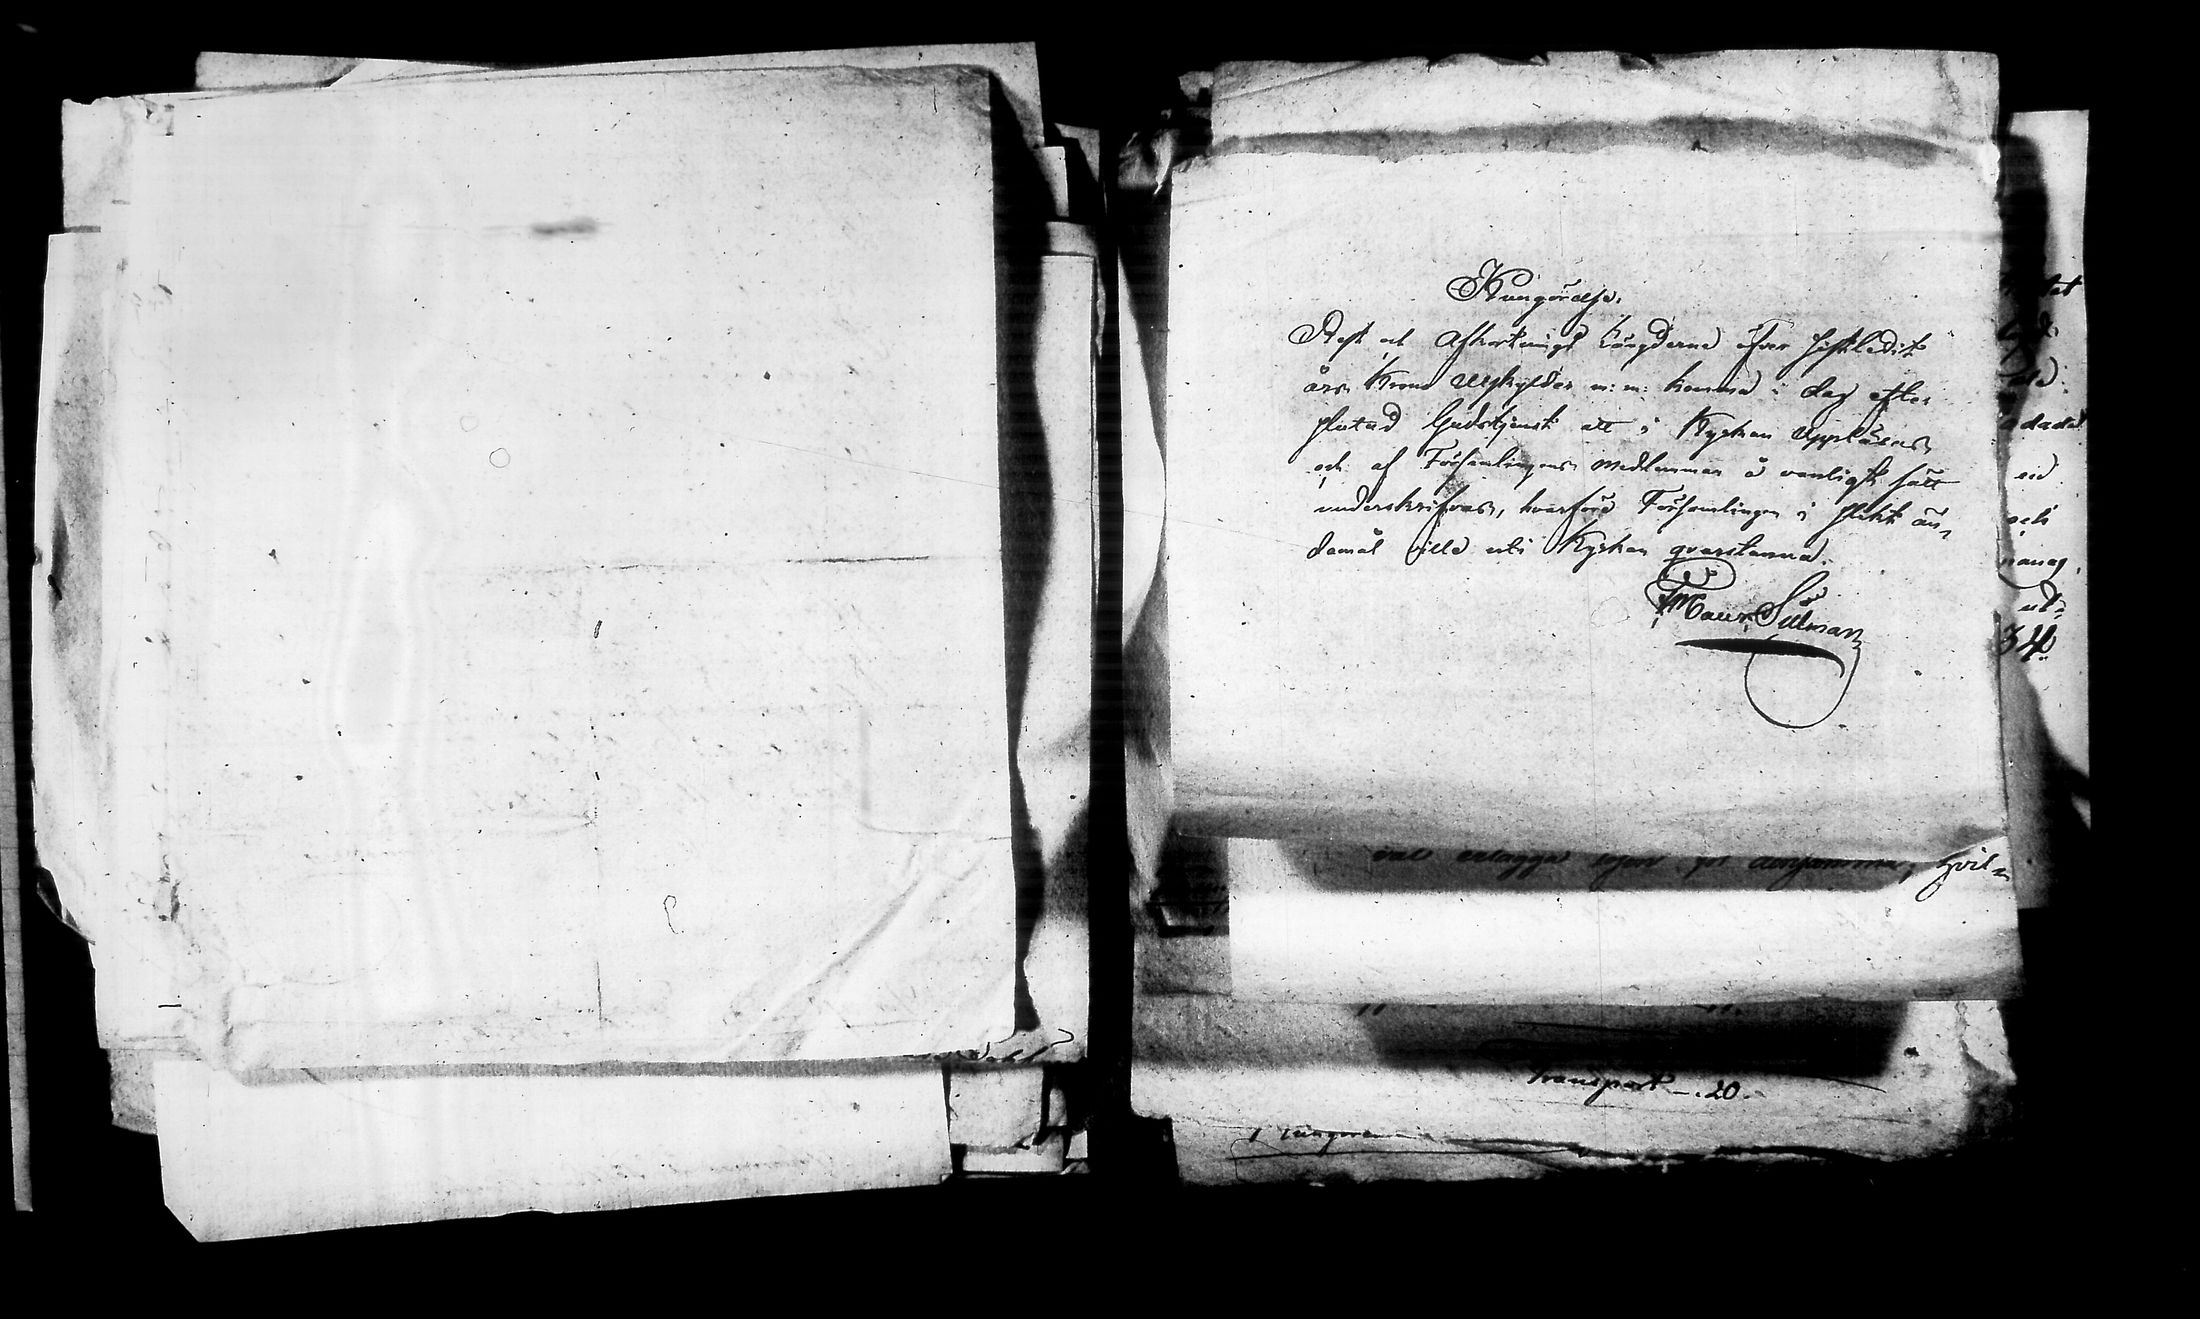 Kungörelse.
Rest och Afkortnings Längderne öfver sistledit
års Krono Utskylder m: m: komma i dag efter
slutad Gudstjenst att i Kyrkan uppläsas
och af Församlingens medlemmar å vanligt sätt
underskrifvas, hvarföre Församlingen i slikt än-
damål ville uti Kyrkan qvarstanna.
Sillman
erlagga, hvil-
Transport - 20 -
adadet
och
34